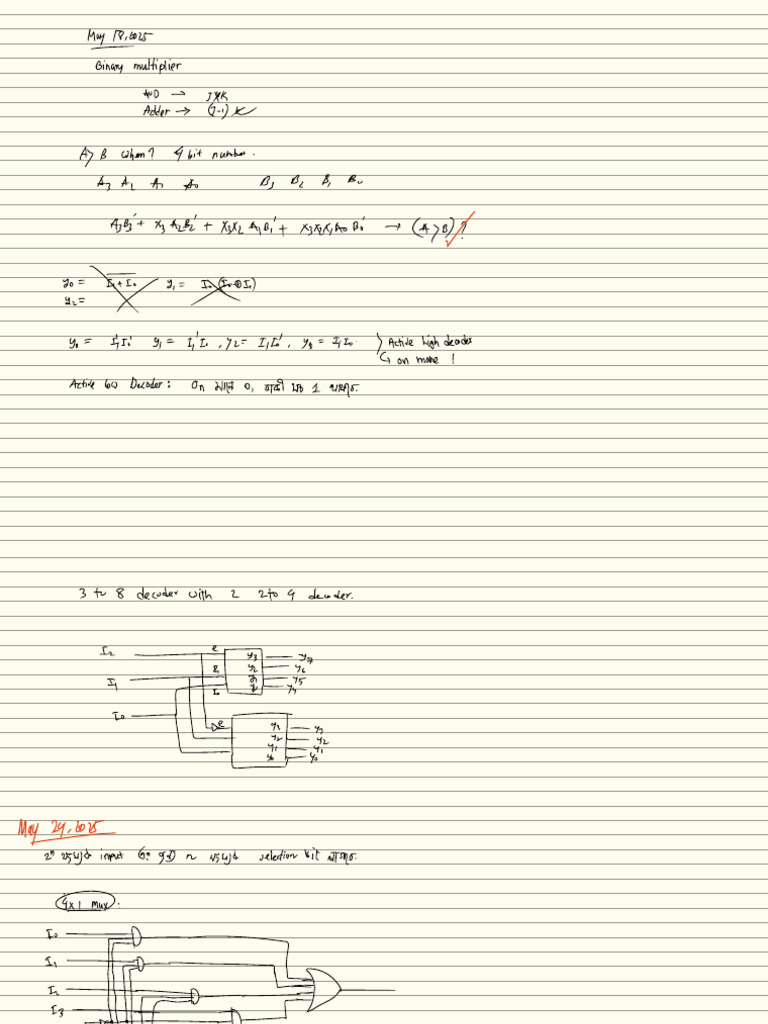 May 18, 2025
Binary multiplier
AND → J*K
Adder → (J-1) K
A>B when? 4 bit number.
A3 A2 A1 A0 B3 B2 B1 B0
A3B3' + X3 A2B2' + X3X2 A1B1' + X3X2X1A0 B0' → (A>B)?
y0 = I1 + I0 y1 = I0 (I0⊕I1)
y2 =
y0 = I1'I0' y1 = I1'I0 , y2 = I1I0' , y3 = I1I0 } Active high decoder
↳ on mane 1
Active low Decoder: On মানে 0, বাকী সব 1 থাকবে.
3 to 8 decoder with 2 2 to 4 decoder.
I2 e y3 y7
y2 y6
I1 I1 y1 y5
I0 y4
I0
e y3 y3
y2 y2
y1 y1
y0 y0
May 24, 2025
2ⁿ input n selection bit থাকবে.
4x1 Mux:
I0
I1
I2
I3